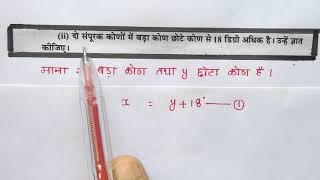 (ii) दो संपूरक कोणों में बड़ा कोण छोटे कोण से 18 डिग्री अधिक है। उन्हें ज्ञात
कीजिए।
माना = बड़ा कोण तथा y छोटा कोण हैं।
x = y+18° — ①